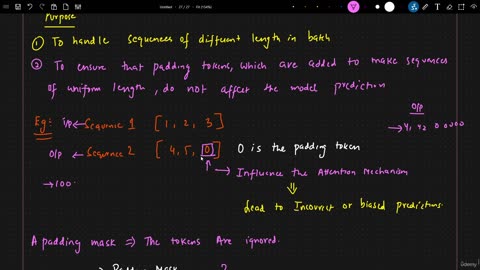 Purpose
① To handle sequences of different length in batch
② To ensure that padding tokens, which are added to make sequences
of uniform length, do not affect the model prediction
O/p
Eg: I/p ← Sequence 1 [1, 2, 3]
O/p ← Sequence 2 [4, 5, 0] 0 is the padding token
→ Influence the Attention Mechanism
→ 100.
Lead to Incorrect or biased predictions.
A padding mask ⇒ The tokens Are ignored.